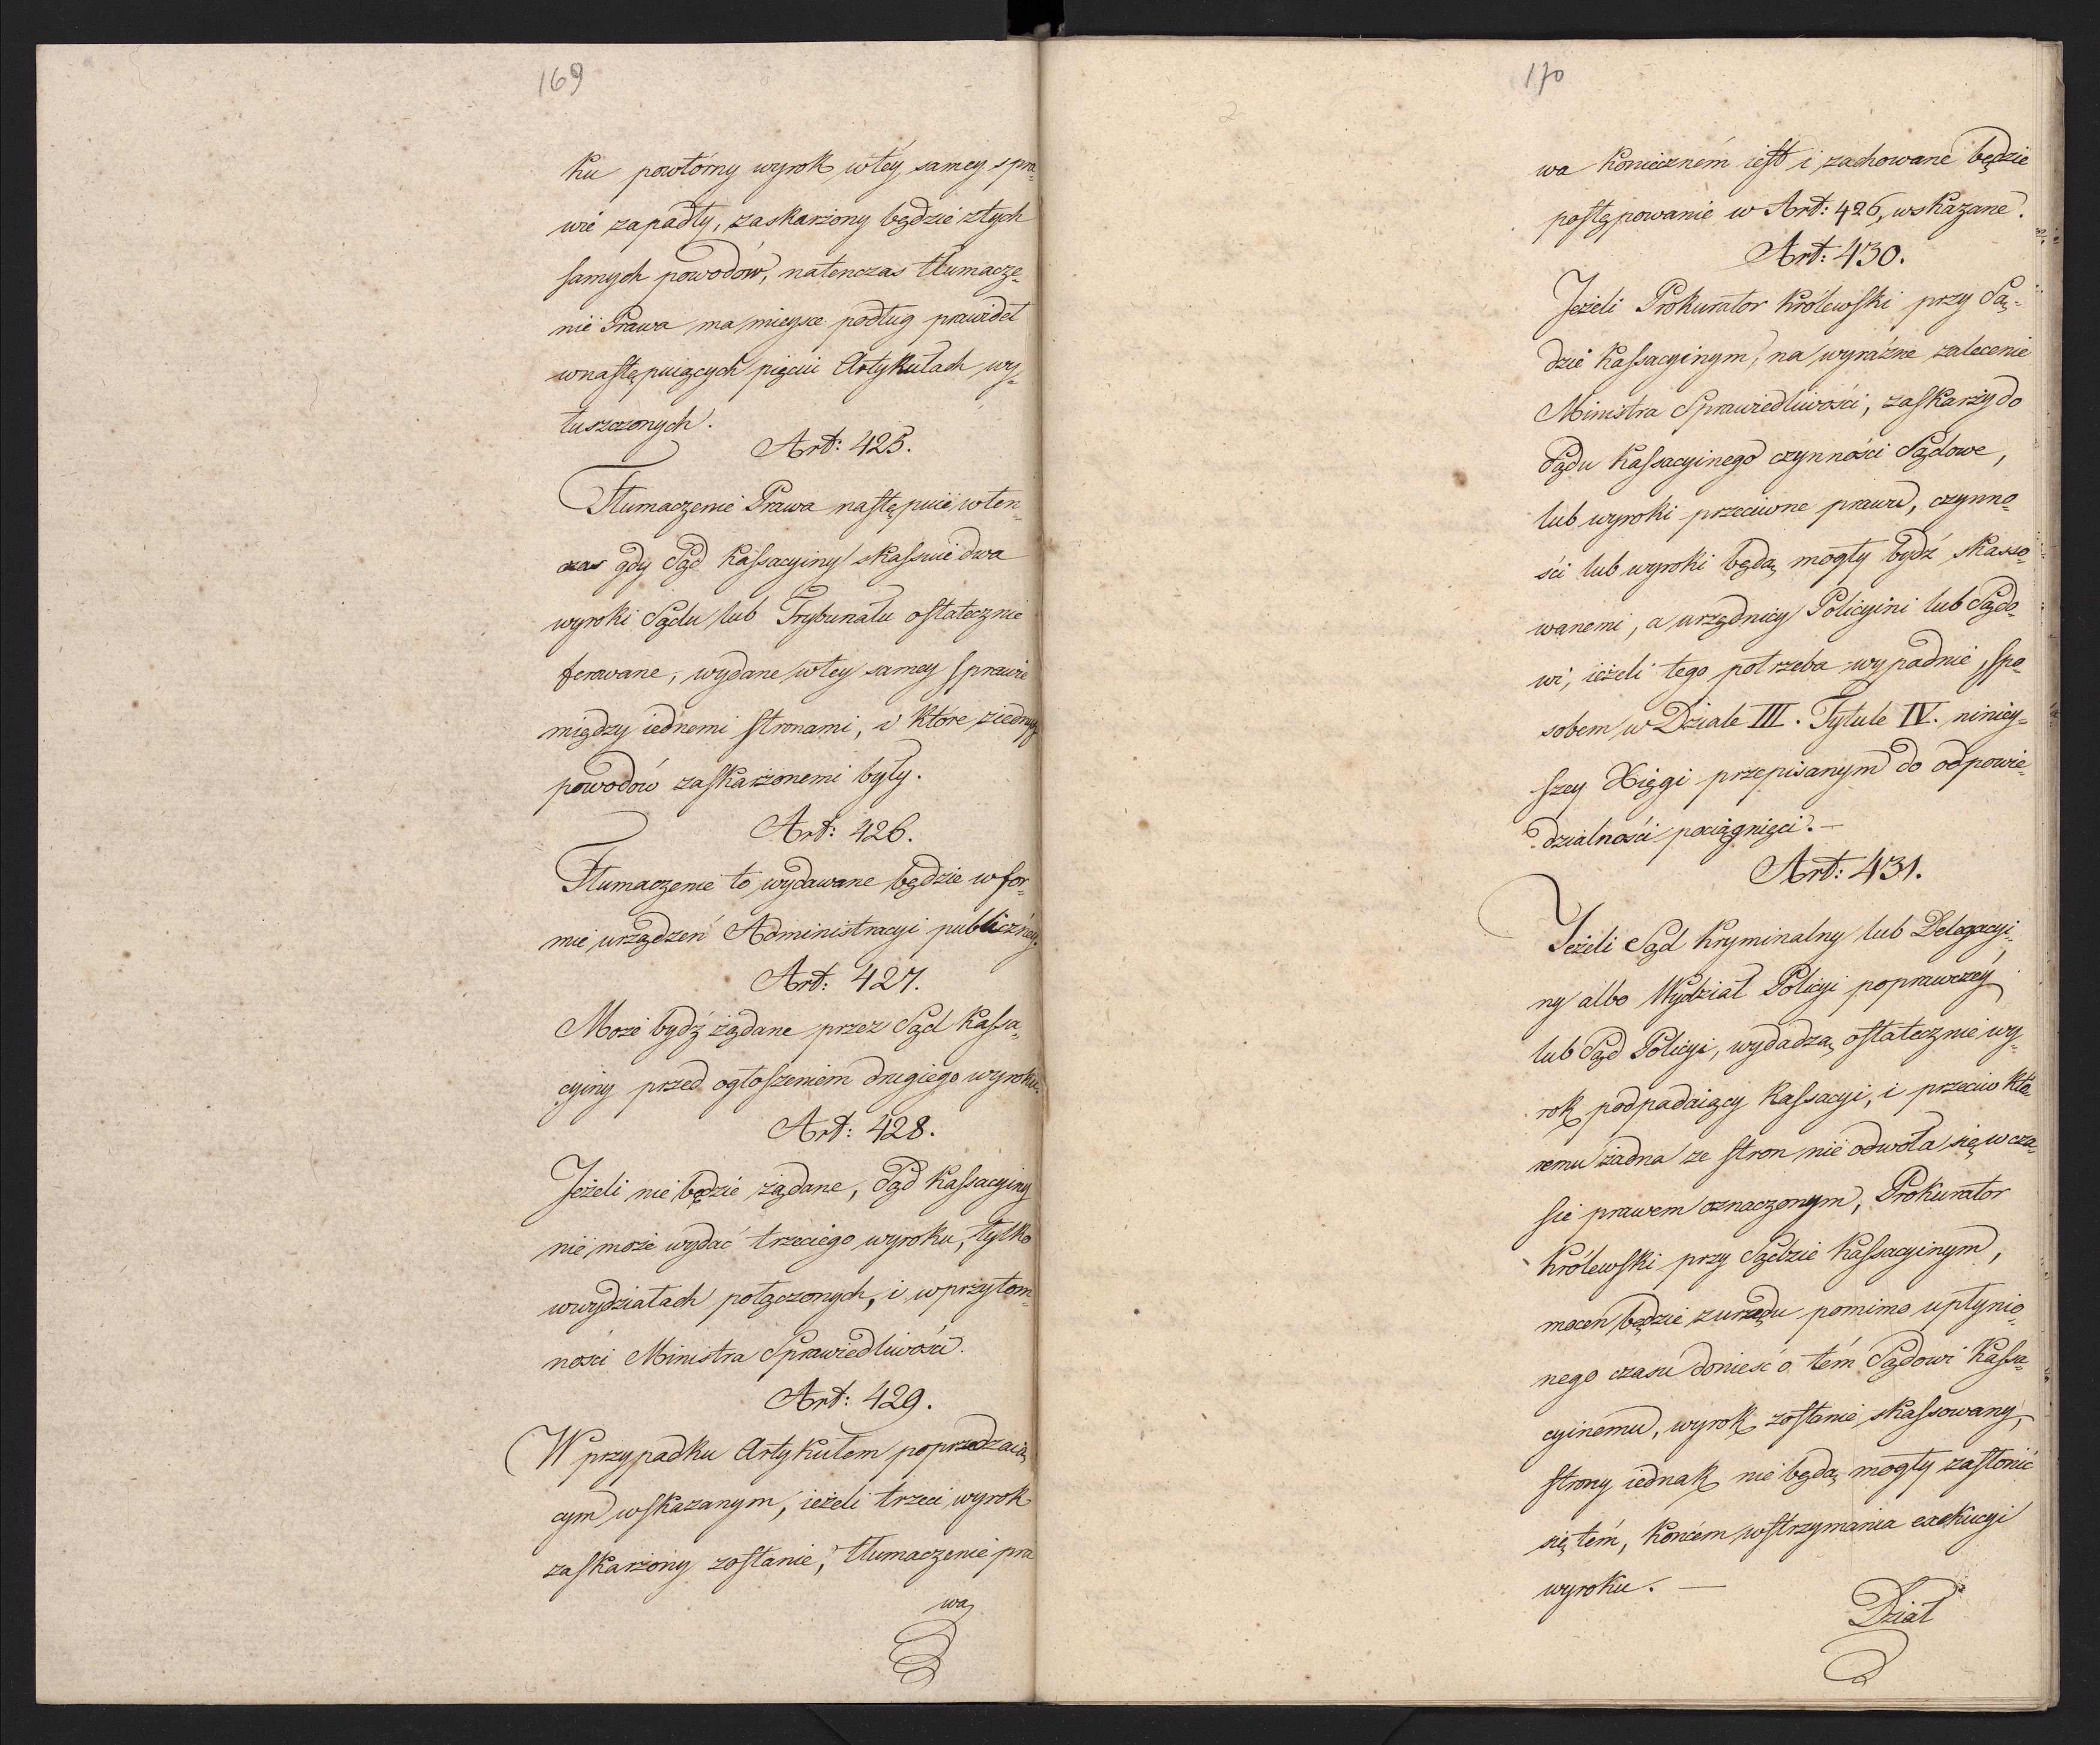 169
ku powtórny wyrok w téy saméy spra-
wie zapadły, zaskarżony będzie z tych
samych powodów, natenczas tłumacze-
nie Prawa ma mieysce podług prawideł
w następuiących pięciu Artykułach wy-
łuszczonych.
Art: 425.
Tłumaczenie Prawa następuie w ten-
czas gdy Sąd Kassacyiny skassuie dwa
wyroki Sądu lub Trybunału ostatecznie
ferowane, wydane w tey samey sprawie
między iednemi stronami, i które z iednych
powodów zaskarżonemi były.
Art: 426.
Tłumaczenie to wydawane będzie w for-
mie urządzeń Administracyi publicznéy.
Art: 427.
Może bydź żądane przez Sąd Kassa-
cyiny przed ogłoszeniem drugiego wyroku.
Art: 428.
Jeżeli nie będzie żądane, Sąd Kassacyiny
nie może wydać trzeciego wyroku, tylko
w wydziałach połączonych, i w przytom-
ności Ministra Sprawiedliwości.
Art: 429.
W przypadku Artykułem poprzedzaią-
cym wskazanym, ieżeli trzeci wyrok
zaskarżony zostanie, tłumaczenie pra
wa
170
wa konieczném iest i zachowane będzie
postępowanie w Art: 426, wskazane.
Art: 430.
Jeżeli Prokurator Królewski przy Są-
dzie Kassacyinym, na wyraźne zalecenie
Ministra Sprawiedliwości, zaskarży do
Sądu Kassacyinego czynności Sądowe,
lub wyroki przeciwne prawu, czynno-
ści lub wyroki będą mogły bydź skasso-
wanemi, a urzędnicy Policyini lub Sądo-
wi, ieżeli tego potrzeba wypadnie, spo-
sobem w Dziale III. Tytule IV. niniey-
szey Xięgi przepisanym do odpowie-
dzialności pociągnięci. —
Art: 431.
Jeżeli Sąd Kryminalny lub Delegacyi-
ny albo Wydział Policyi poprawczéy
lub Sąd Policyi, wydadzą ostatecznie wy-
rok podpadaiący Kassacyi, i przeciw któ-
remu żadna ze stron nie odwoła się w cza-
sie prawem oznaczonym, Prokurator
Królewski przy Sądzie Kassacyinym,
mocen będzie z urzędu pomimo upłynio-
nego czasu donieść o tém Sądowi Kassa-
cyinemu, wyrok zostanie skassowany,
strony iednak nie będą mogły zasłonić
się tém, końcem wstrzymania exekucyi
wyroku. —
Dział